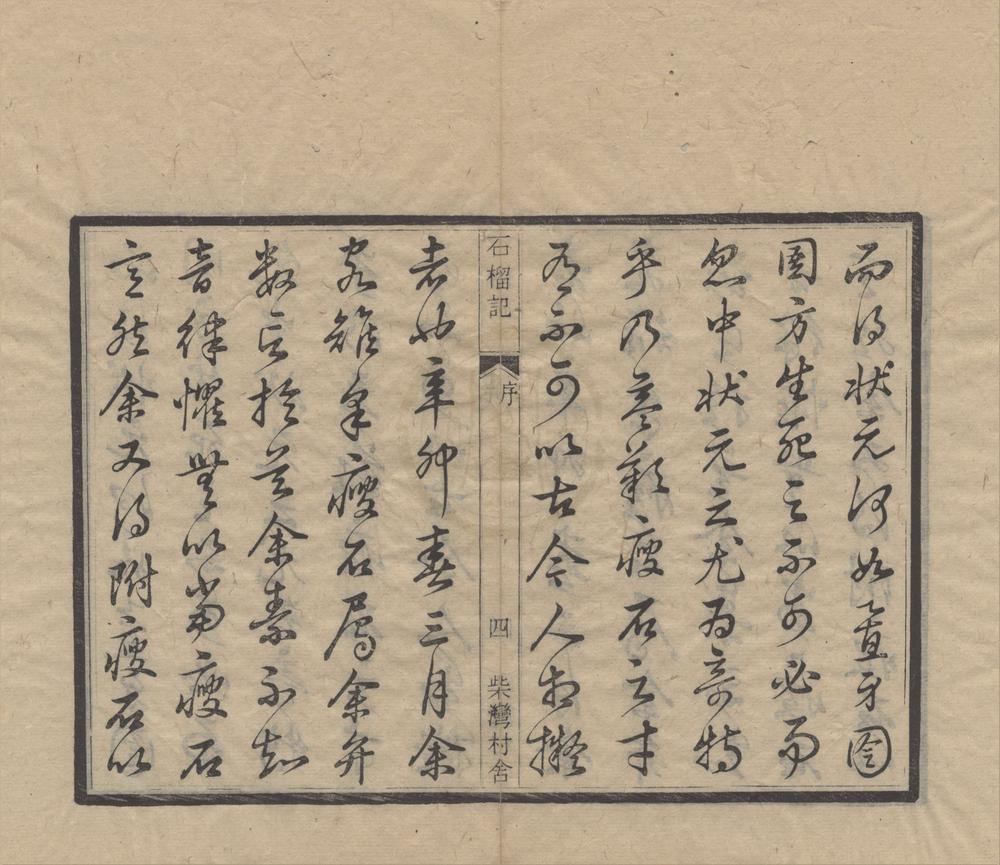 而得狀元何如置身囹
圄方生死之不可必而
忽中狀元之尤為奇特
乎乃益歎瘦石之才
有不可以古今人相擬
者也辛卯春三月余
石榴記 序 四 柴灣村舍
客雉皋瘦石屬余弁
數言於首余素不知
音律懼無以當瘦石
意然余又得附瘦石以